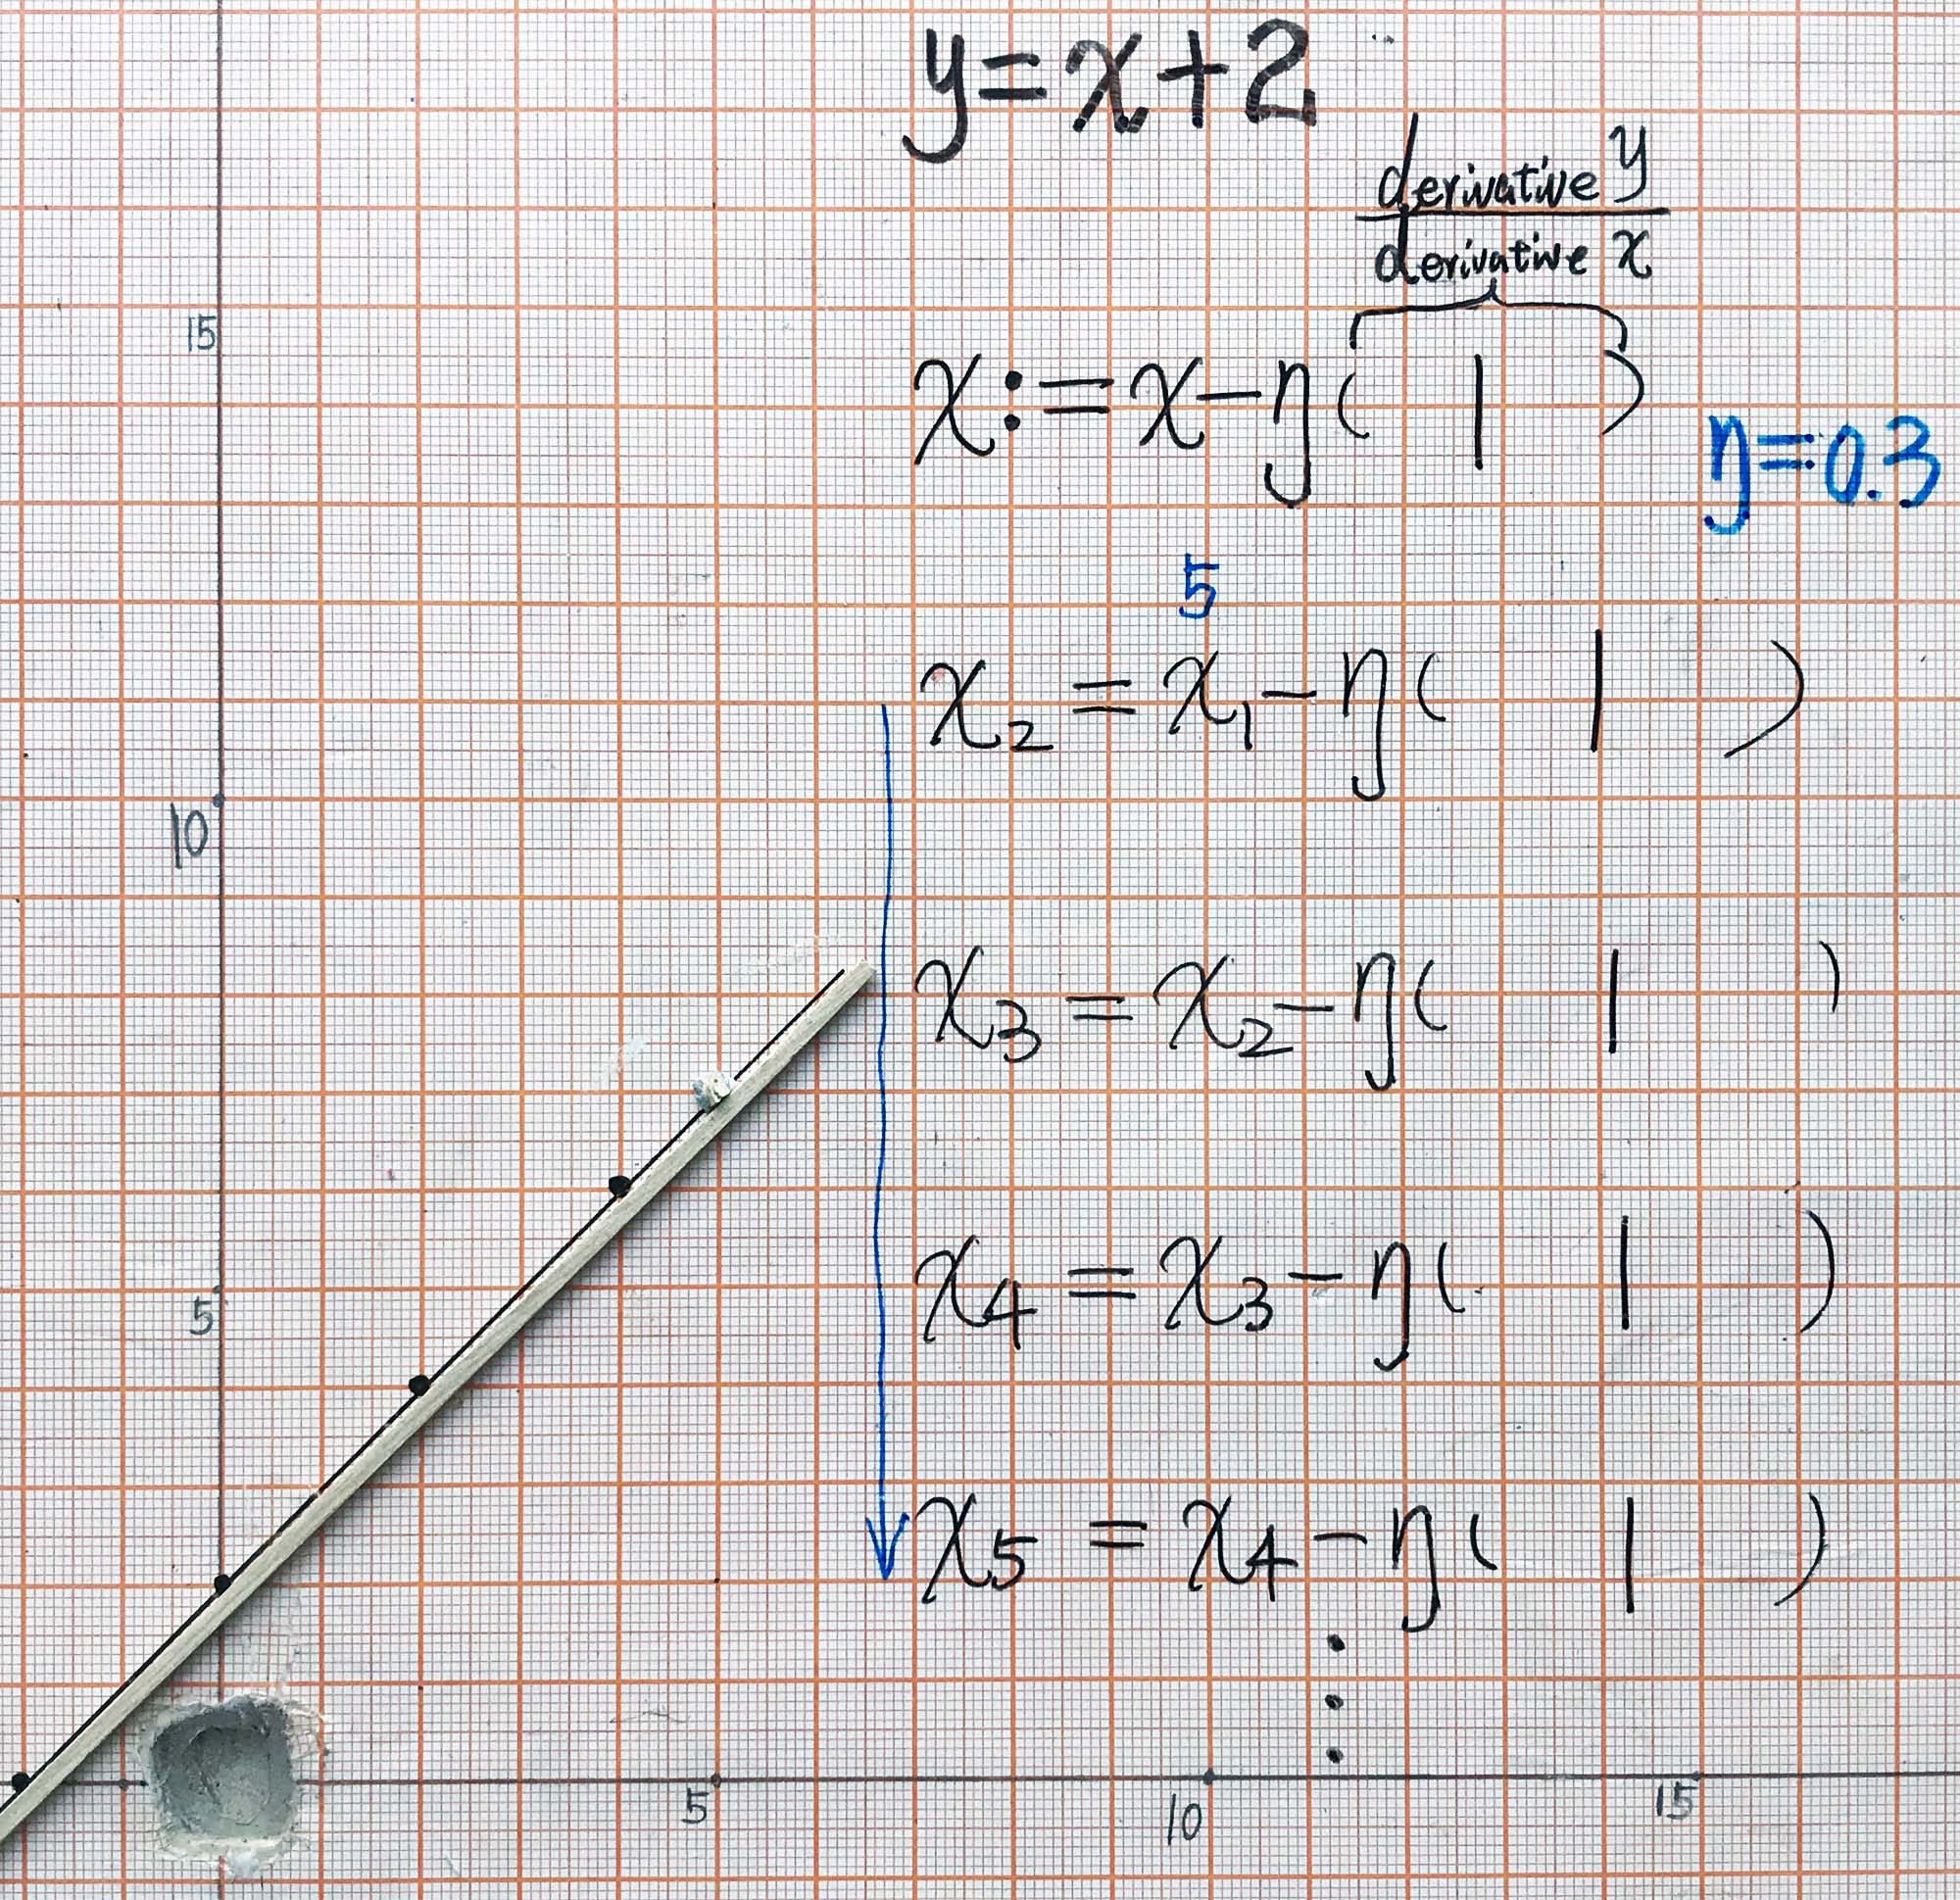 y=x+2
derivative y
derivative x
x:=x-η( 1 )
η=0.3
5
x₂ = x₁-η( 1 )
x₃ = x₂-η( 1 )
x₄ = x₃-η( 1 )
x₅ = x₄-η( 1 )
⋮
15
10
5
5 10 15